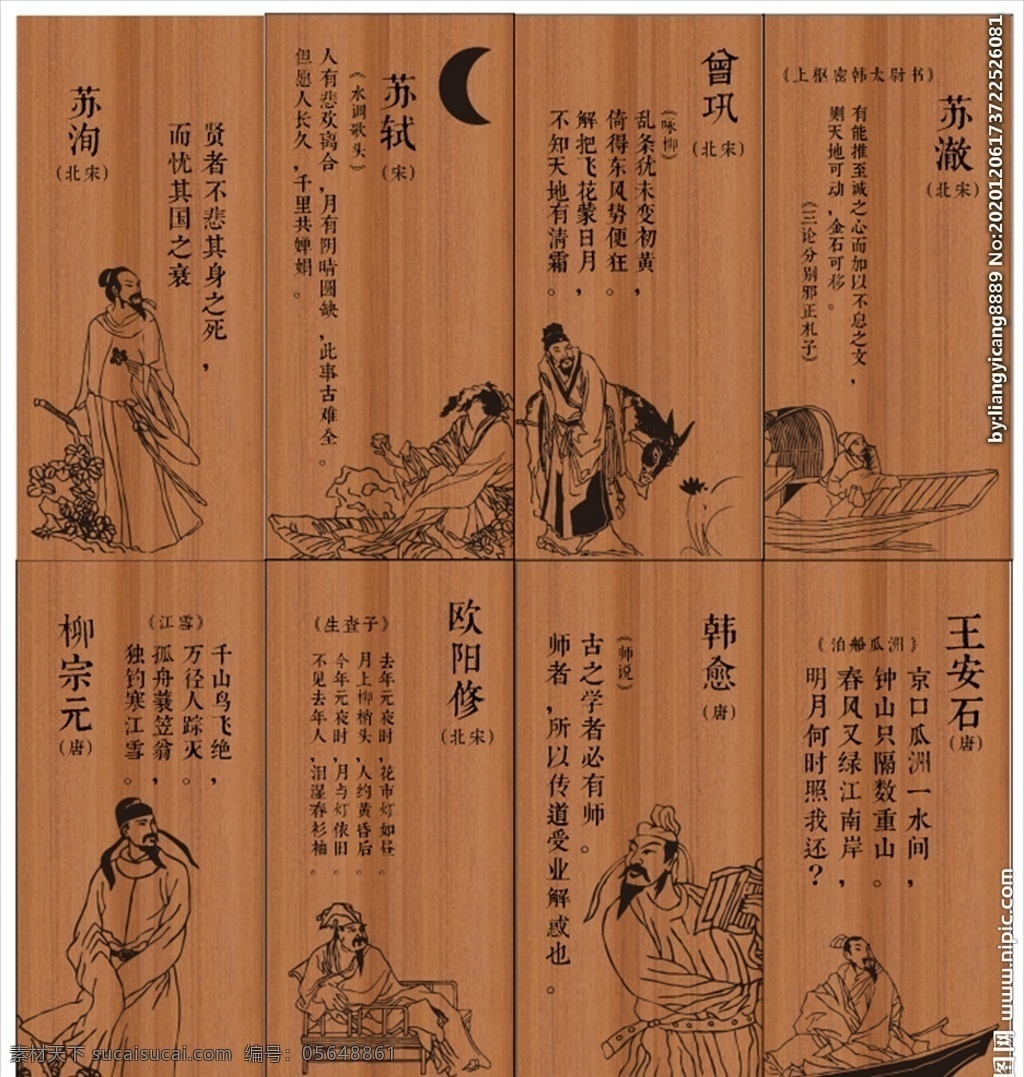 苏洵
（北宋）
贤者不悲其身之死，
而忧其国之衰
苏轼
（宋）
《水调歌头》
人有悲欢离合，月有阴晴圆缺，此事古难全。
但愿人长久，千里共婵娟。
曾巩
（北宋）
《咏柳》
乱条犹未变初黄，
倚得东风势便狂。
解把飞花蒙日月，
不知天地有清霜。
苏澈
（北宋）
《上枢密韩太尉书》
有能推至诚之心而加以不息之文，
则天地可动，金石可移。
《三论分别邪正札子》
柳宗元
（唐）
《江雪》
千山鸟飞绝，
万径人踪灭。
孤舟蓑笠翁，
独钓寒江雪。
欧阳修
（北宋）
《生查子》
去年元夜时，花市灯如昼。
月上柳梢头，人约黄昏后。
今年元夜时，月与灯依旧。
不见去年人，泪湿春衫袖。
韩愈
（唐）
《师说》
古之学者必有师。
师者，所以传道受业解惑也。
王安石
（唐）
《泊船瓜洲》
京口瓜洲一水间，
钟山只隔数重山。
春风又绿江南岸，
明月何时照我还？
by:liangyicang8889 No:20201206173722526081
图网 www.nipic.com
素材天下 sucaisucai.com 编号：05648861